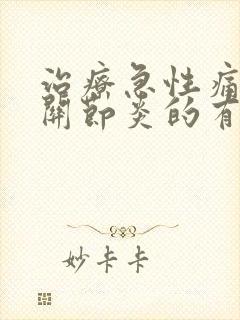 治療急性痛
關節炎的有
妙卡卡